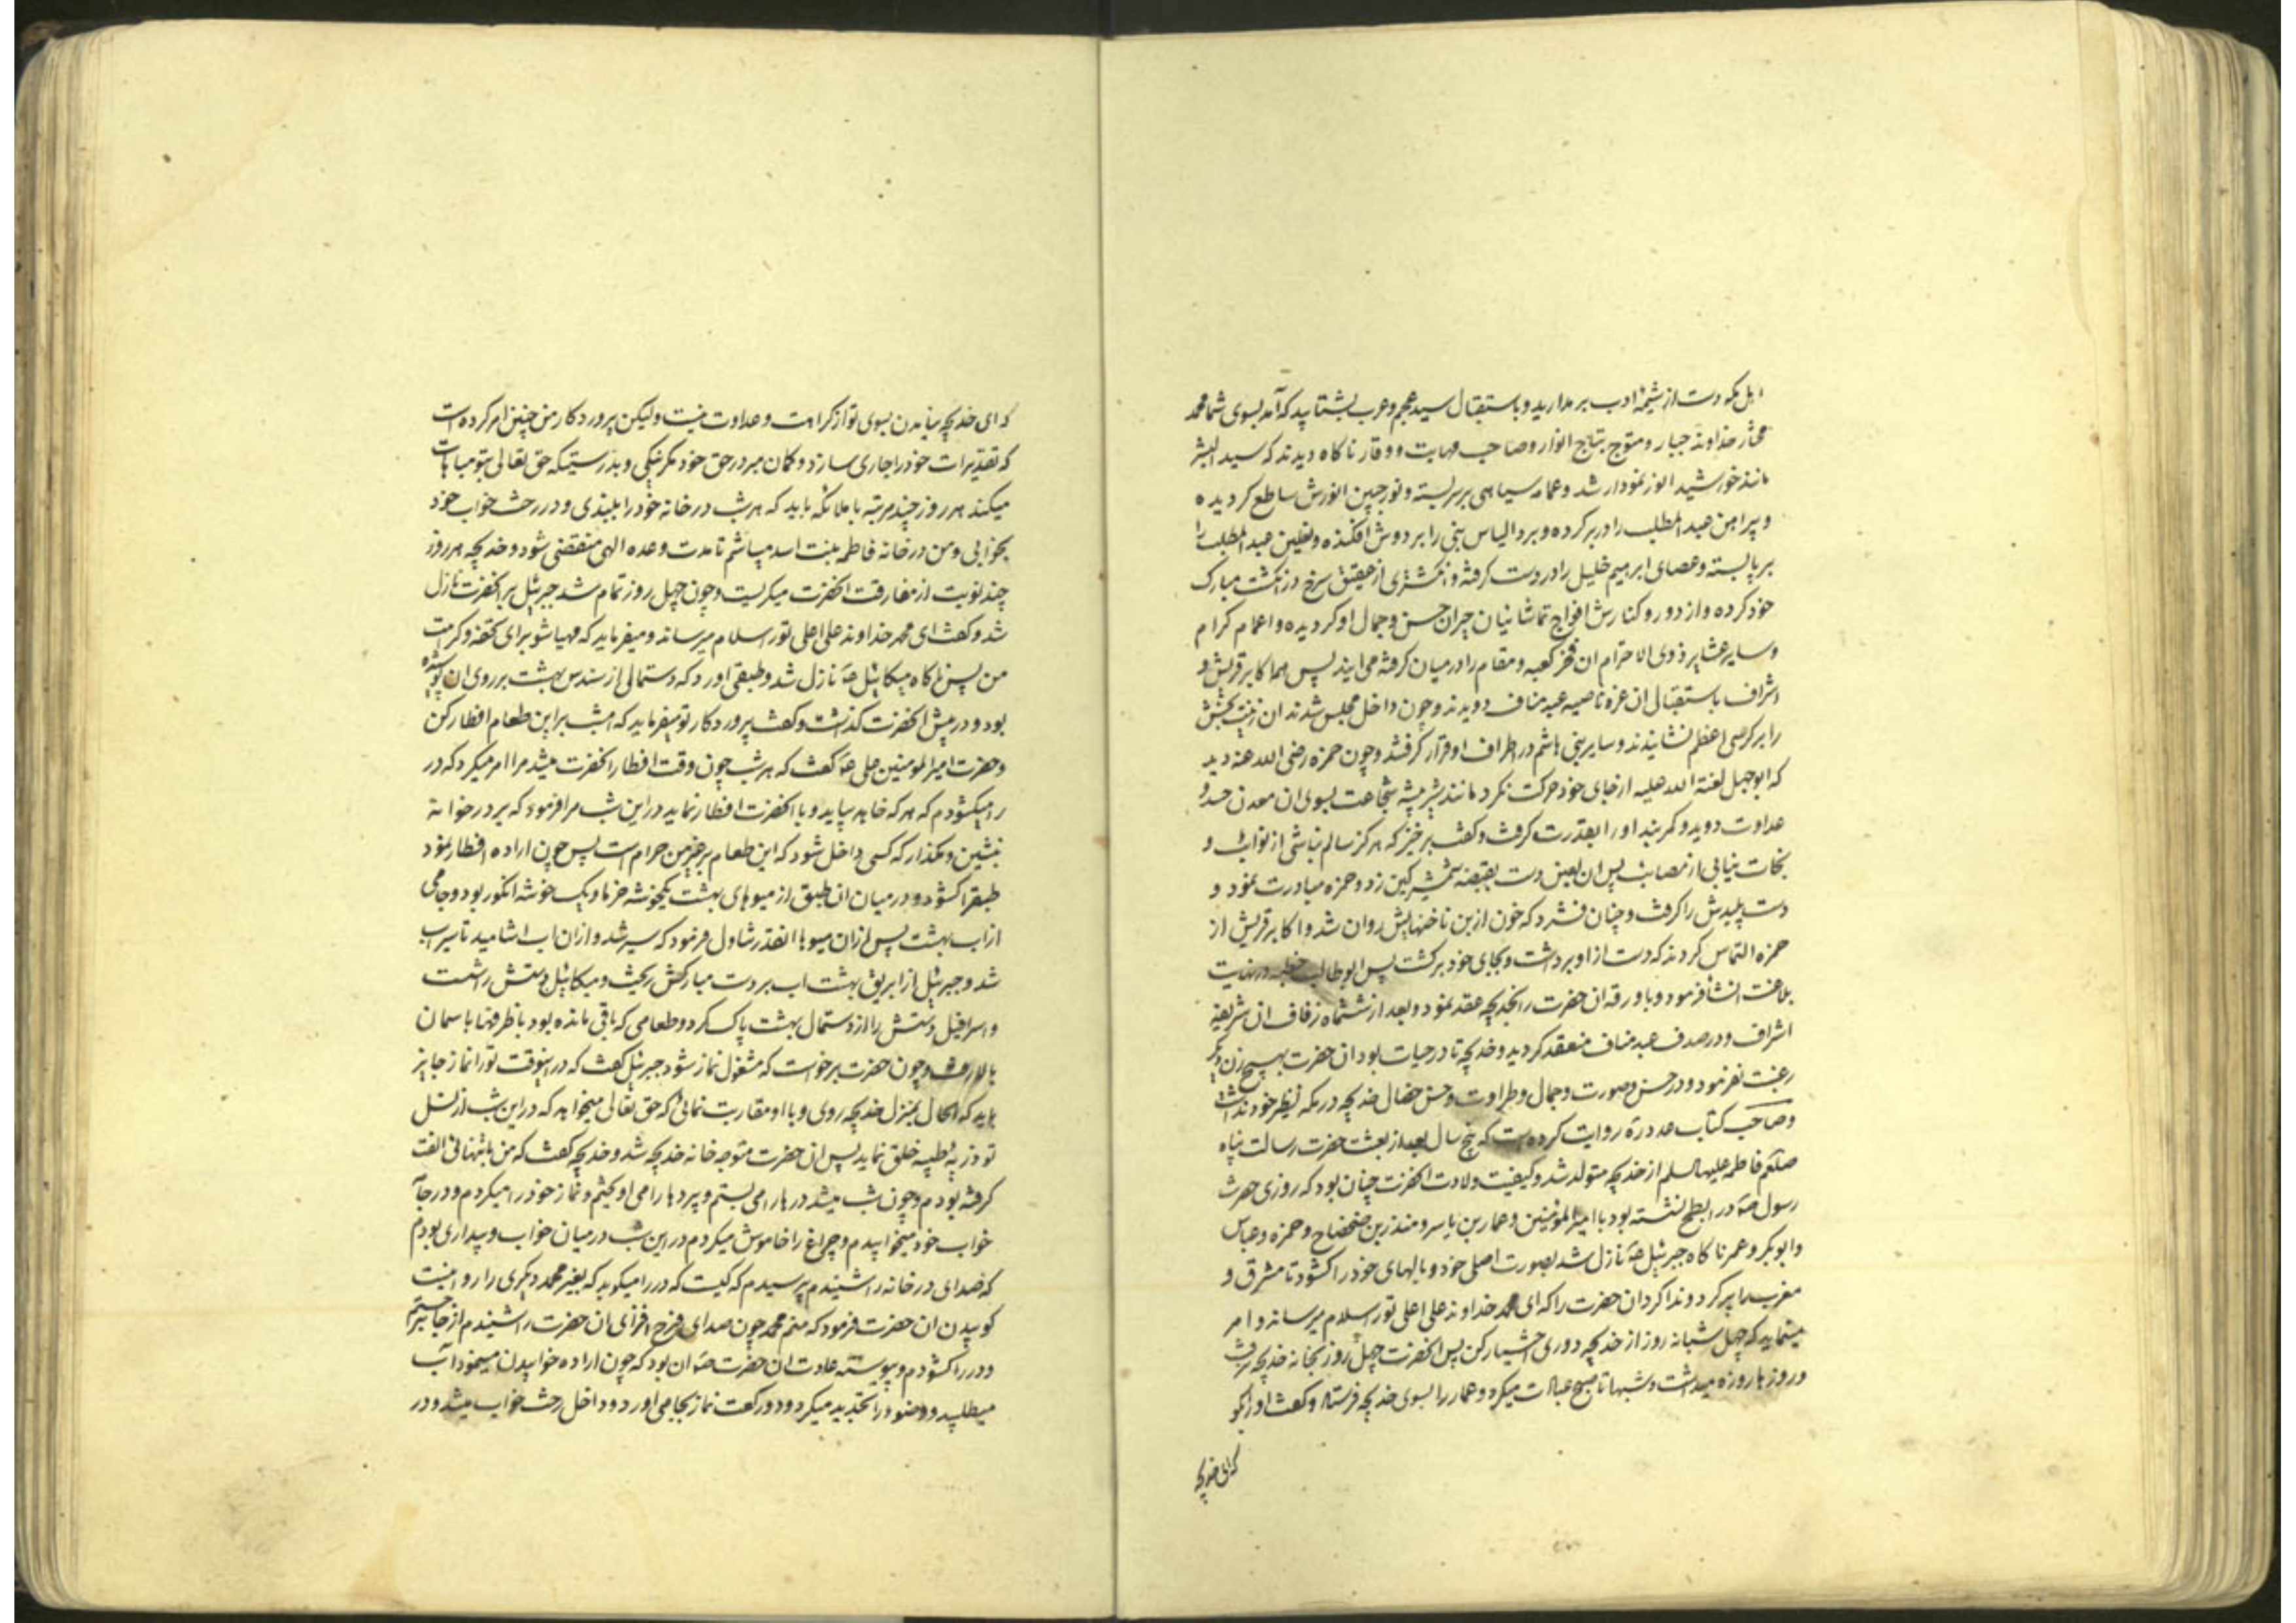 اهل مکه دست از شیمهٔ ادب برمدارید و باستقبال سید عجم و عرب بشتابید که آمد بسوی شما محمد
مختار خداوند جبار و متوج بتاج انوار و صاحب مهابت و وقار ناکاه دیدند که سید البشر
مانند خورشید انور نمودار شد و عمامه سیاهی بر سر بسته و نور جبین انورش ساطع کردیده
و پیراهن عبد المطلب را در بر کرده و برد الیاس نبی را بر دوش افکنده و نعلین عبد المطلب را
بر پا بسته و عصای ابرهیم خلیل را در دست کرفته و انکشتری از عقیق سرخ در انکشت مبارک
خود کرده و از دور و کنارش افواج تماشائیان حیران حسن و جمال او کردیده و اعمام کرام
و سایر عشایر ذوی الاحترام ان فخر کعبه و مقام را در میان کرفته می ایند پس همه اکابر قریش و
اشراف باستقبال ان غره ناصیه عبد مناف دویدند و چون داخل مجلس شدند ان زینت بخش
را بر کرسی اعظم نشانیدند و سایر بنی هاشم در اطراف او قرار کرفتند و چون حمزه رضی الله عنه دید
که ابو جهل لعنة الله علیه از جای خود حرکت نکرد مانند شیر بیشه شجاعت بسوی ان معدن حسد و
عداوت دوید و کمربند او را بقدرت کرفت و کفت برخیز که هرکز سالم نباشی از نوائب و
نجات نیابی از مصائب پس ان لعین دست بقبضه شمشیر کین زد و حمزه مبادرت نمود و
دست پلیدش را کرفت و چنان فشرد که خون از بن ناخنهایش روان شد و اکابر قریش از
حمزه التماس کردند که دست از او برداشت و بجای خود برکشت پس ابو طالب خطبه در نهایت
بلاغت انشا فرمود و با ورقه ان حضرت را بخدیجه عقد نمود و بعد از ششماه زفاف ان شریفه
اشراف و در صدف عبد مناف منعقد کردید و خدیجه تا در حیات بود ان حضرت بهیچ زن دیگر
رغبت نفرمود و در حسن صورت و جمال و طراوت و حسن خصال خدیجه در مکه نظیر خود نداشت
و صاحب کتاب عدد رة روایت کرده است که پنج سال بعد از بعثت حضرت رسالت پناه
صلعم فاطمه علیها السلم از خدیجه متولد شد و کیفیت ولادت انحضرت چنان بود که روزی حضرت
رسول صه در ابطح نشسته بود با امیر المؤمنین و عمار بن یاسر و منذر بن ضحضاح و حمزه و عباس
و ابو بکر و عمر ناکاه جبرئیل عه نازل شد بصورت اصلی خود و بالهای خود را کشود تا مشرق و
مغرب را پر کرد و ندا کرد ان حضرت را که ای محمد خداوند علی اعلی تو را سلام میرساند و امر
مینماید که چهل شبانه روز از خدیجه دوری اختیار کن پس انحضرت چهل روز بخانه خدیجه نرفت
و روزها روزه میداشت و شبها تا صبح عبادت میکرد و عمار را بسوی خدیجه فرستاد و کفت او را بکو
که ای خدیجه
که ای خدیجه نیامدن بسوی تو از کراهت و عداوت نیست ولیکن پروردکار من چنین امر کرده است
که تقدیرات خود را جاری سازد و کمان مبر در حق خود مکر نیکی و بدرستیکه حق تعالی بتو مباهات
میکند هر روز چند مرتبه با ملائکه باید که هر شب در خانه خود را ببندی و در رخت خواب خود
بخوابی و من در خانه فاطمه بنت اسد میباشم تا مدت وعده الهی منقضی شود و خدیجه هر روز
چند نوبت از مفارقت انحضرت میکریست و چون چهل روز تمام شد جبرئیل بر انحضرت نازل
شد و کفت ای محمد خداوند علی اعلی تو را سلام میرساند و میفرماید که مهیا شو برای تحفه و کرامت
من پس ناکاه میکائیل عه نازل شد و طبقی اورد که دستمالی از سندس بهشت بر روی ان پوشیده
بود و در پیش انحضرت کذاشت و کفت پروردکار تو میفرماید که امشب بر این طعام افطار کن
و حضرت امیر المومنین علی عه کفت که هر شب چون وقت افطار انحضرت میشد مرا امر میکرد که در
را میکشودم که هر که خاهد بیاید و با انحضرت افطار نماید در این شب مرا فرمود که بر در خوانه
بنشین و مکذار که کسی داخل شود که این طعام بر غیر من حرام است پس چون اراده افطار نمود
طبق را کشود و در میان ان طبق از میوهای بهشت یکخوشه خرما و یک خوشه انکور بود و جامی
از اب بهشت پس از ان میوها انقدر تناول فرمود که سیر شد و از ان اب اشامید تا سیراب
شد و جبرئیل از ابریق بهشت اب بر دست مبارکش ریخت و میکائیل دستش را شست
و اسرافیل دستش را از دستمال بهشت پاک کرد و طعامی که باقی مانده بود با ظرفها باسمان
بالا رفت و چون حضرت برخواست که مشغول نماز شود جبرئیل کفت که در اینوقت تو را نماز جایز
باید که الحال بمنزل خدیجه روی و با او مقاربت نمائی که حق تعالی میخواهد که در این شب از نسل
تو ذریه طیبه خلق نماید پس ان حضرت متوجه خانه خدیجه شد و خدیجه کفت که من با تنهائی الفت
کرفته بودم و چون شب میشد درها را می بستم و پردها را می اویختم و نماز خود را میکردم و در جامه
خواب خود میخوابیدم و چراغ را خاموش میکردم در این شب در میان خواب و بیداری بودم
که صدای در خانه را شنیدم پرسیدم که کیست که در را میکوبد که بغیر محمد دیکری را روا نیست
کوبیدن ان حضرت فرمود که منم محمد چون صدای فرح افزای ان حضرت را شنیدم از جا برجستم
و در را کشودم و پیوسته عادت ان حضرت صه ان بود که چون اراده خوابیدن مینمود آب
میطلبید و وضو را تجدید میکرد و دو رکعت نماز بجا می اورد و داخل رخت خواب میشد و در